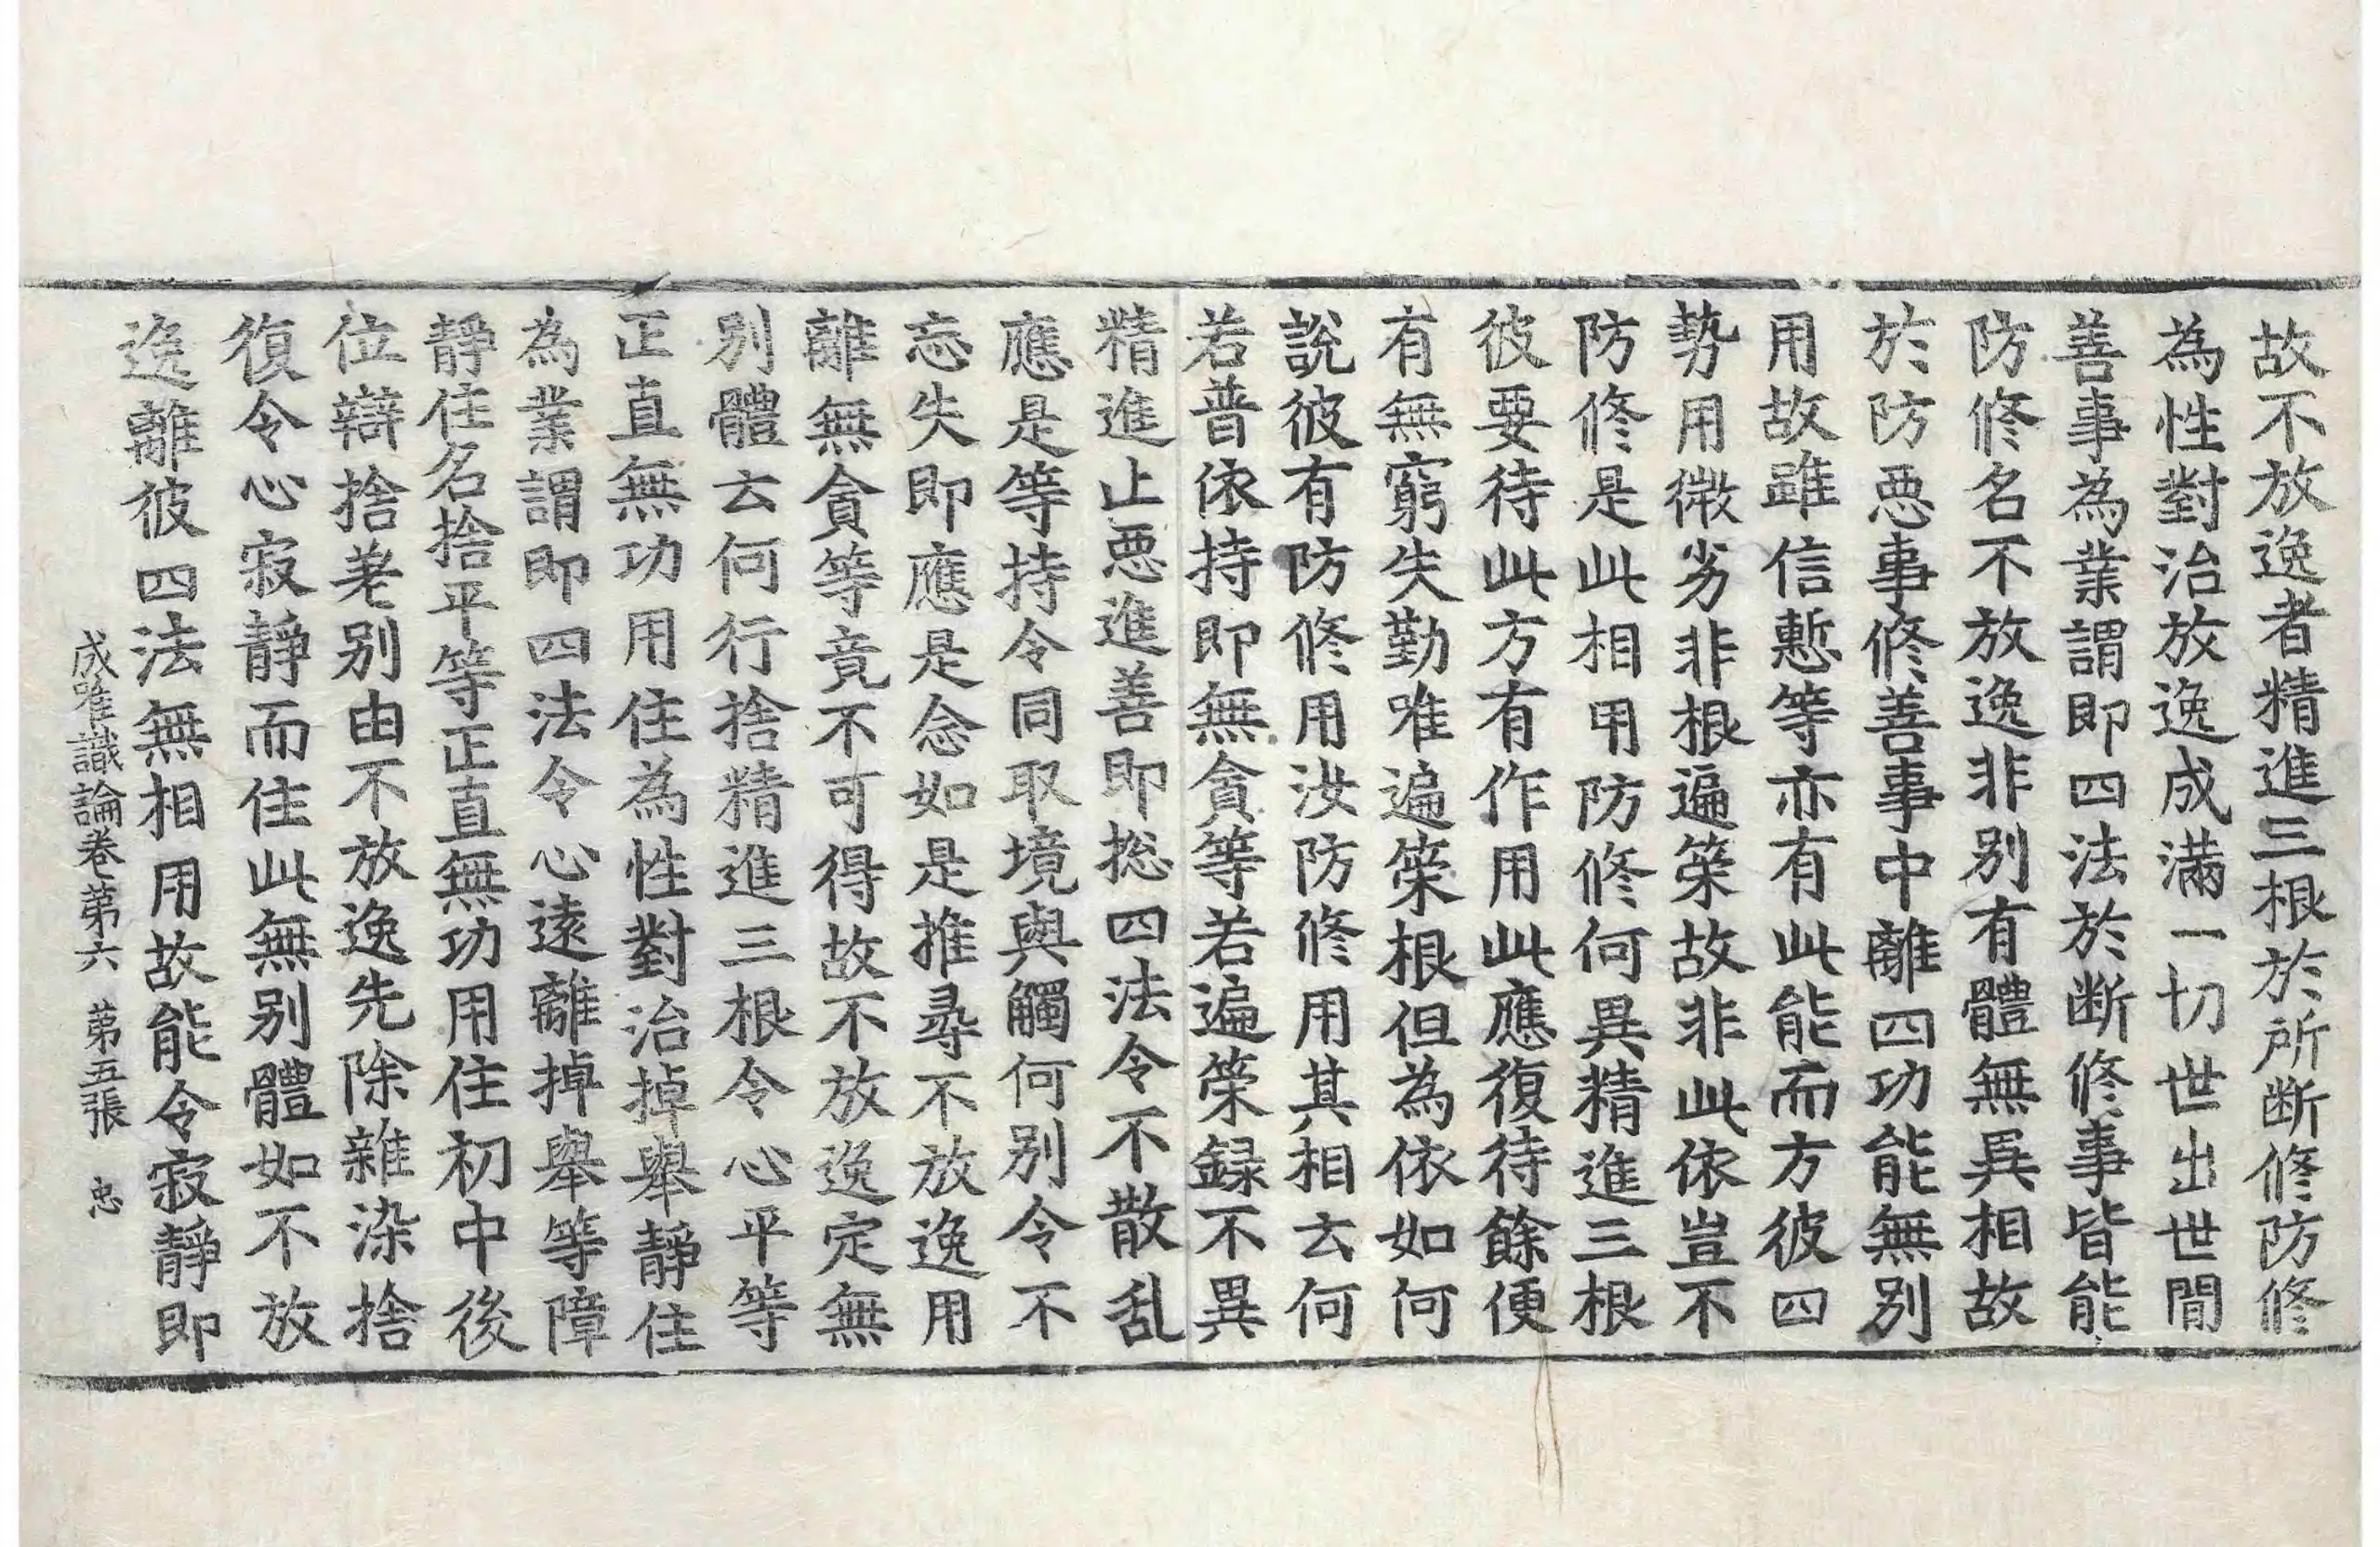 故不放逸者精進三根於所断修防修
為性對治放逸成滿一切世出世間
善事為業謂即四法於断修事皆能
防修名不放逸非别有體無異相故
於防惡事修善事中離四功能無别
用故雖信慙等亦有此能而方彼四
勢用微劣非根遍策故非此依豈不
防修是此相用防修何異精進三根
彼要待此方有作用此應復待餘便
有無窮失勤唯遍策根但為依如何
說彼有防修用汝防修用其相云何
若普依持即無貪等若遍策録不異
精進止惡進善即揔四法令不散乱
應是等持令同取境與觸何别令不
忘失即應是念如是推尋不放逸用
離無貪等竟不可得故不放逸定無
别體云何行捨精進三根令心平等
正直無功用住為性對治掉舉靜住
為業謂即四法令心遠離掉舉等障
靜住名捨平等正直無功用住初中後
位辯捨差别由不放逸先除雜染捨
復令心寂靜而住此無别體如不放
逸離彼四法無相用故能令寂靜即
成唯識論卷第六 第五張 忠